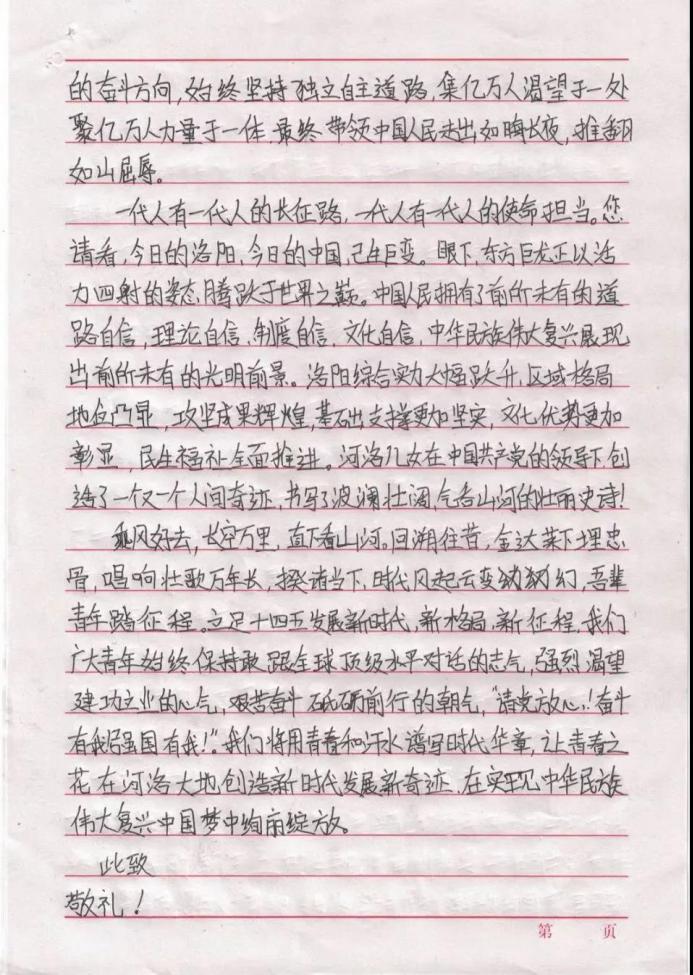 的奋斗方向,始终坚持独立自主道路,集亿万人渴望于一处
聚亿万人力量于一体,最终带领中国人民走出如晦长夜,推翻
如山屈辱。
一代人有一代人的长征路,一代人有一代人的使命担当。您
请看,今日的洛阳,今日的中国,已生巨变。眼下,东方巨龙正以活
力四射的姿态腾跃于世界之巅。中国人民拥有了前所未有的道
路自信,理论自信,制度自信,文化自信,中华民族伟大复兴展现
出前所未有的光明前景。洛阳综合实力大幅跃升,区域格局
地位凸显,攻坚成果辉煌,基础支撑更加坚实,文化优势更加
彰显,民生福祉全面推进。河洛儿女在中国共产党的领导下,创
造了一个又一个人间奇迹,书写了波澜壮阔,气吞山河的壮丽史诗!
乘风好去,长空万里,直下看山河。回溯往昔,金达莱下埋忠
骨,唱响壮歌万年长,揆诸当下,时代风起云变幻,吾辈
青年踏征程。立足十四五发展新时代,新格局,新征程,我们
广大青年始终保持敢跟全球顶级水平对话的志气,强烈渴望
建功立业的心气,艰苦奋斗砥砺前行的朝气,“请党放心!奋斗
有我强国有我!”。我们将用青春和汗水谱写时代华章,让青春之
花在河洛大地创造新时代发展新奇迹,在实现中华民族
伟大复兴中国梦中绚丽绽放。
此致
敬礼!
第 页